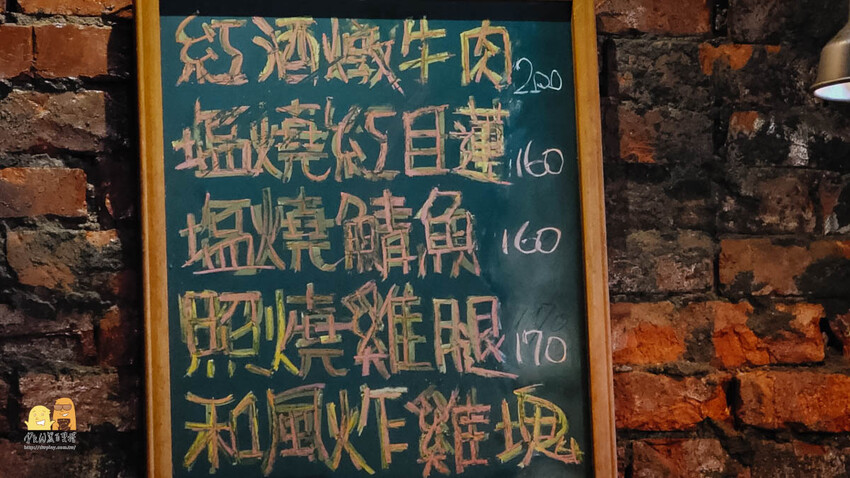 紅酒燉牛肉 200
塩燒紅目蓮 160
塩燒鯖魚 160
照燒雞腿 170
和風炸雞塊